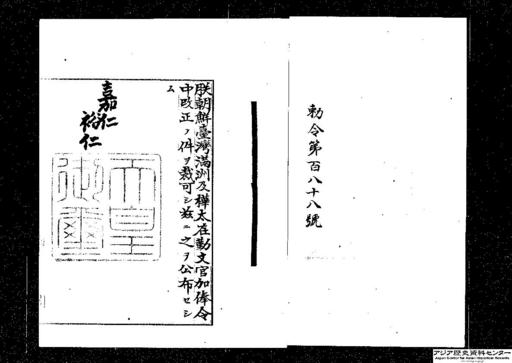 勅令第百八十八號
朕朝鮮臺灣滿洲及樺太在勤文官加俸令
中改正ノ件ヲ裁可シ茲ニ之ヲ公布セシ
ム
嘉仁
裕仁
天皇
御璽
アジア歴史資料センター
Japan Center for Asian Historical Records